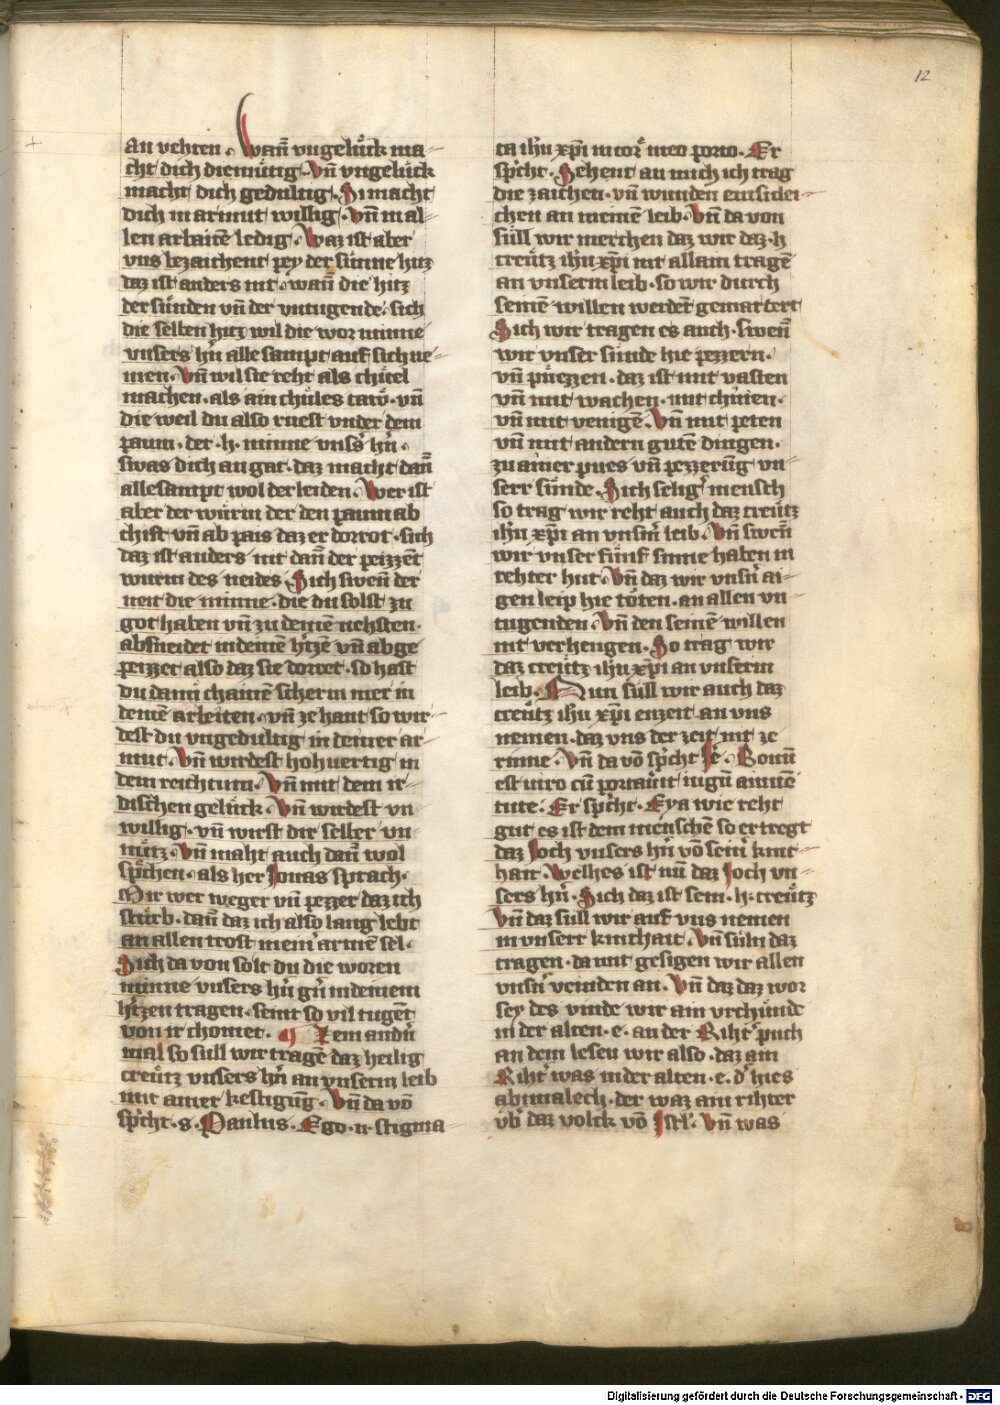 12
an vehten. Wañ vngelu̍ck ma-
cht dich diemu̍tig. Vñ vngelu̍ck
macht dich gedultig. Si macht
dich in armut willig. Vñ in al-
len arbaitē ledig. Waz ist aber
vns bezaichent pey der su̍nne hitz
daz ist anders nit. wañ die hitz
der su̍nden vñ der vntugende. sich
die selben hitz wil die wor minne
vnsers hr̄n alle sampt auf sich ne-
men. Vñ wil sie reht als chu̍el
machen. als ain chu̍les taw. vñ
die weil du also ruest vnder dem
paum. der .h. minne vnsˢ hr̄n.
swas dich an gat. daz macht dañ
alle sampt wol der leiden. Wer ist
aber der wu̍rm der den paum ab
chist vñ ab pais daz er dorrot. sich
daz ist anders nit dañ der peizzēt
wurm des neides. Sich swen̄ der
neit die minne. die du solst zu
got haben vñ zu deinē nehsten.
absneidet in deinē hˢtzē vñ abge
peizzet also daz sie dorret. so hast
du dar̄n chainē scherm mer in
deinē arbeiten. vñ ze hant so wir-
dest du vngedultig in deiner ar-
mut. Vñ wirdest hohvertig in
dem reichtum. Vñ mit dem ir-
dischen gelu̍ck. Vñ wirdest vn
willig. vñ wirst dir selber vn
nu̍tz. Vñ maht auch dañ wol
spˢchen. als her Jonas sprach.
Mir wer weger vñ pezzer daz ich
stu̍rb. dañ daz ich also lang lebt
an allen trost meinˢ armē sel.
Sich da von solt du die woren
minne vnsers hr̄n gˢn in deinem
hˢtzen tragen. seint so vil tugēt
von ir chomet. ¶ Item andˢn
mal so sull wir tragē daz heilig
creu̍tz vnsers hr̄n an vnserm leib
mit ainer kestigūg. Vñ da vō
spˢcht .s. Paulus. Ego .n. stigma
ta ihū xp̄i in corˢ meo porto. Er
spˢcht. Sehent an mich ich trag
die zaichen. vñ wunden emsiclei-
chen an meinē leib. Vñ da von
su̍ll wir merchen daz wir daz .h.
creu̍tz ihū xp̄i nit allain tragē
an vnserm leib. so wir durch
seinē willen werdēt gemartert
Sich wir tragen es auch. swen̄
wir vnser su̍nde hie pezzern.
vñ pu̍ezzen. daz ist mit vasten
vñ mit wachen. mit chinien.
vñ mit venigē. Vñ mit peten
vñ mit andern gutē dingen.
zu ainer pues vñ pezzerūg vn-
serr su̍nde. Sich seligˢ mensch
so trag wir reht auch daz creu̍tz
ihū xp̄i an vnsmˢ leib. Vñ swen̄
wir vnser fu̍nf sinne haben in
rehter hut. Vñ daz wir vnsnˢ ai-
gen leip hie to̍ten. an allen vn-
tugenden. Vñ den seinē willen
nit verhengen. So trag wir
daz creu̍tz ihū xp̄i an vnserm
leib. Nun su̍ll wir auch daz
creu̍tz ihū xp̄i enzeit an vns
nemen. daz vns der zeit nit ze
rinne. Vñ da vō spˢcht Je. Bonū
est viro cū portauˢit iugū ab iuuē
tute. Er spˢcht. Eya wie reht
gut es ist dem menschē so er tregt
daz Joch vnsers hr̄n vō seinˢ kint-
hait. Welhes ist nu̍ daz Joch vn-
sers hr̄n. Sich daz ist sein .h. creu̍tz
Vñ daz sull wir auf vns nemen
in vnserr kinthait. Vñ su̍ln daz
tragen. da mit gesigen wir allen
vnsnˢ veinden an. Vñ daz daz wor
sey des vinde wir ain vrchu̍nde
in der alten .e. an der Rihtˢ puch
an dem lesen wir also. daz ain
Rihtˢ was in der alten .e. dˢ hies
abimalech. der waz ain rihter
v̍bˢ daz volck vō Jsrl. Vñ was
Digitalisierung gefördert durch die Deutsche Forschungsgemeinschaft - DFG